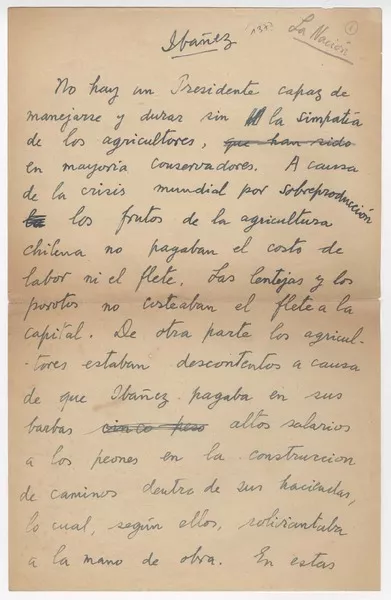 Ibáñez
La Nación
1
No hay un Presidente capaz de
manejarse y durar sin la simpatía
de los agricultores, que han sido
en mayoría conservadores. A causa
de la crisis mundial por sobreproducción
los frutos de la agricultura
chilena no pagaban el costo de
labor ni el flete. Las lentejas y los
porotos no costeaban el flete a la
capital. De otra parte los agricul-
-tores estaban descontentos a causa
de que Ibáñez pagaba en sus
barbas cinco peso altos salarios
a los peones en la construccion
de caminos dentro de sus haciendas,
lo cual, según ellos, soliviantaba
a la mano de obra. En estas